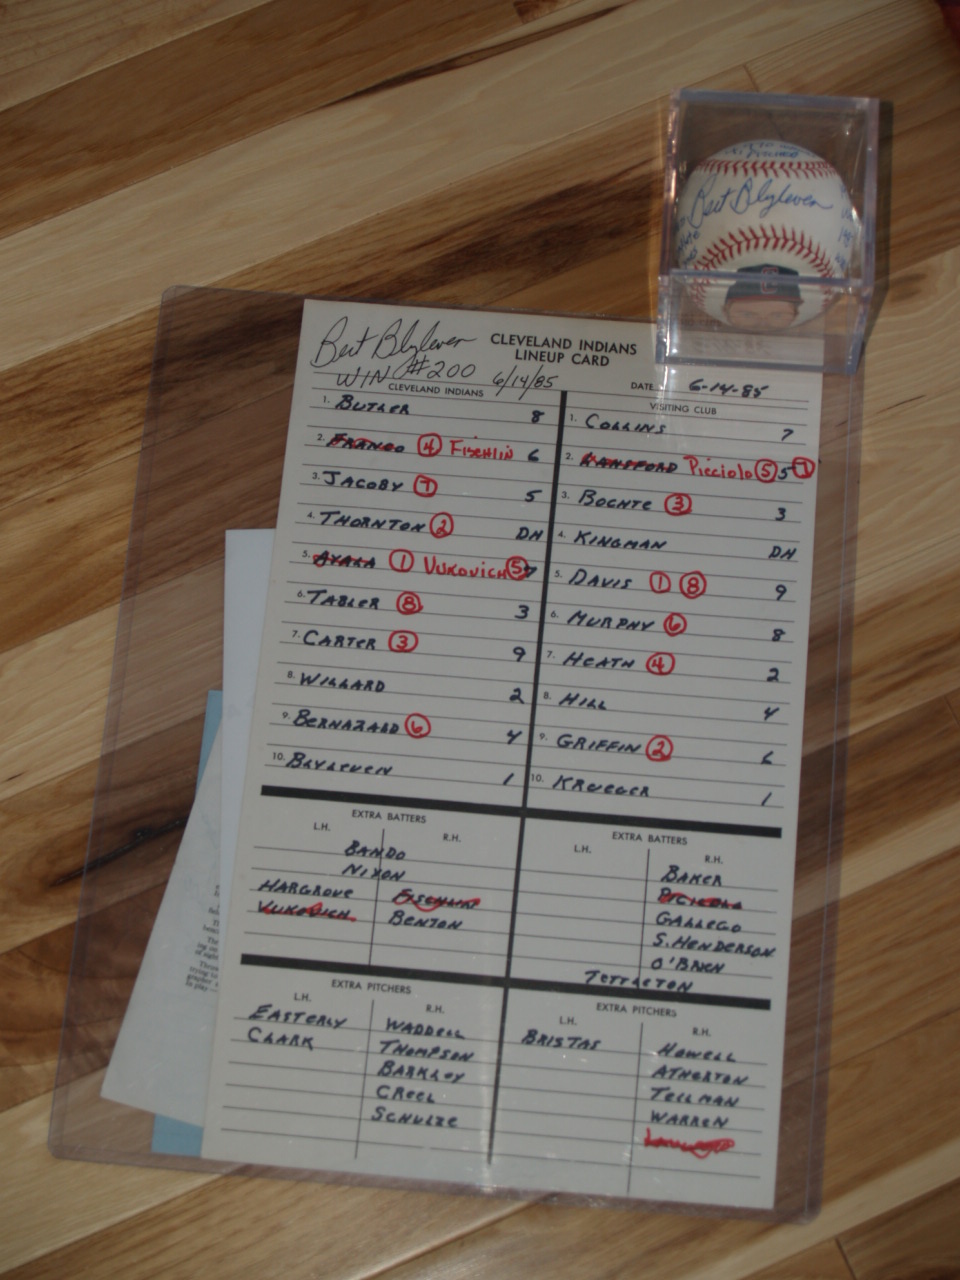 Bert Blyleven
Bert Blyleven
WIN #200 6/14/85
CLEVELAND INDIANS
LINEUP CARD
DATE 6-14-85
CLEVELAND INDIANS
1. BUTLER 8
2. FRANCO 4 Fischlin 6
3. JACOBY 7 5
4. THORNTON 2 DH
5. AYALA 1 VUKOVICH 5 7
6. TABLER 8 3
7. CARTER 3 9
8. WILLARD 2
9. BERNAZARD 6 4
10. BLYLEVEN 1
VISITING CLUB
1. COLLINS 7
2. LANSFORD Picciolo 5 5 7
3. BOCHTE 3 3
4. KINGMAN DH
5. DAVIS 1 8 9
6. MURPHY 6 8
7. HEATH 4 2
8. HILL 4
9. GRIFFIN 2 6
10. KRUEGER 1
EXTRA BATTERS
L.H. R.H.
BANDO
NIXON
HARGROVE FISCHLIN
VUKOVICH BENTON
EXTRA BATTERS
L.H. R.H.
BAKER
PICCIOLO
GALLEGO
S.HENDERSON
O'BRIEN
TETTLETON
EXTRA PITCHERS
L.H. R.H.
EASTERLY WADDELL
CLARK THOMPSON
BARKLEY
CREEL
SCHULZE
EXTRA PITCHERS
L.H. R.H.
BRISTAS HOWELL
ATHERTON
TELLMAN
WARREN